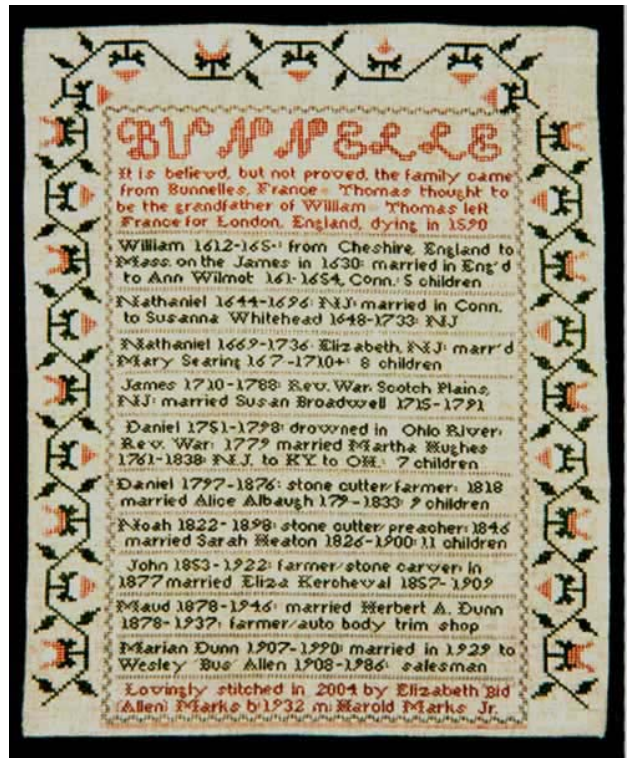 BUNNELLE
It is believd, but not proved, the family came
from Bunnelles, France- Thomas thought to
be the grandfather of William- Thomas left
France for London, England, dying in 1590
William 1612-165-: from Cheshire, England to
Mass. on the James in 1630: married in Eng'd
to Ann Wilmot 161-1654, Conn.: 5 children
Nathaniel 1644-1696: N.J: married in Conn.
to Susanna Whitehead 1648-1733: N.J
Nathaniel 1669-1736: Elizabeth, N.J: marr'd
Mary Searing 167-1710+: 8 children
James 1710-1788: Rev. War: Scotch Plains,
NJ: married Susan Broadwell 1715-1791
Daniel 1751-1798: drowned in Ohio River:
Rev. War: 1779 married Martha Hughes
1761-1838: N.J. to KY. to OH.: 7 children
Daniel 1797-1876: stone cutter/farmer: 1818
married Alice Albaugh 179-1833: 9 children
Noah 1822-1898: stone cutter/preacher: 1846
married Sarah Heaton 1826-1900: 11 children
John 1853-1922: farmer/stone carver: in
1877 married Eliza Kercheval 1857-1909
Maud 1878-1946: married Herbert A. Dunn
1878-1937: farmer/auto body trim shop
Marian Dunn 1907-1990: married in 1929 to
Wesley "Bus" Allen 1908-1986: salesman
Lovingly stitched in 2004 by Elizabeth Bid
(Allen) Marks b:1932 m: Harold Marks Jr.